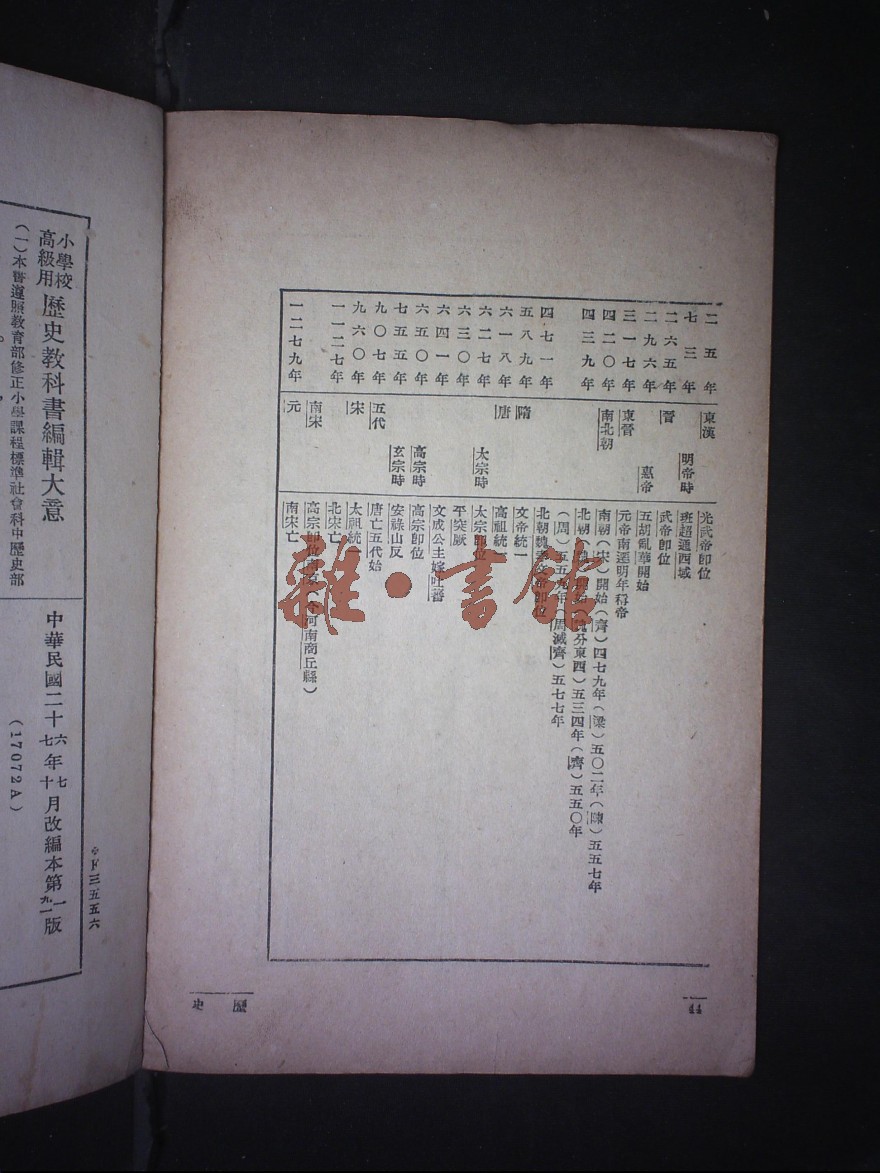 二五年 東漢 光武帝即位
七三年 明帝時 班超通西域
二六五年 晉 武帝即位
二九六年 惠帝 五胡亂華開始
三一七年 東晉 元帝南遷明年稱帝
四二〇年 南北朝 南朝（宋）開始（齊）四七九年（梁）五〇二年（陳）五五七年
四三九年 北朝（魏）開始（魏分東西）五三四年（齊）五五〇年
（周）五五九年（周滅齊）五七七年
四七一年 北朝魏孝文帝即位
五八九年 隋 文帝統一
六一八年 唐 高祖統一
六二七年 太宗時 太宗即位
六三〇年 平突厥
六四一年 文成公主嫁吐蕃
六五〇年 高宗時 高宗即位
七五五年 玄宗時 安祿山反
九〇七年 五代 唐亡五代始
九六〇年 宋 太祖統一
一一二七年 北宋亡
南宋 高宗即位南京（今河南商丘縣）
一二七九年 元 南宋亡
44
歷史
雜·書館
下三五五六
小學校高級用 歷史教科書編輯大意
中華民國二十六七年七十月改編本第一九一版
（17072A）
（一）本書遵照教育部修正小學課程標準社會科中歷史部